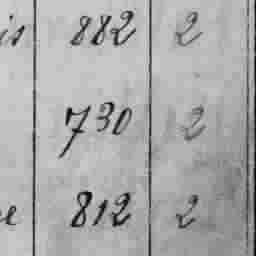 is 882 2
730 2
812 2